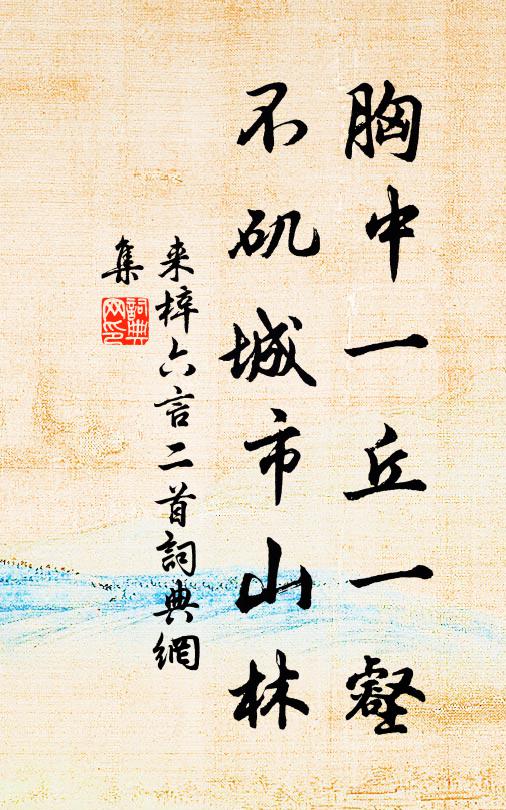 胸中一丘一壑
不矶城市山林
来梓六言二首詞典網
集
詞典
网印